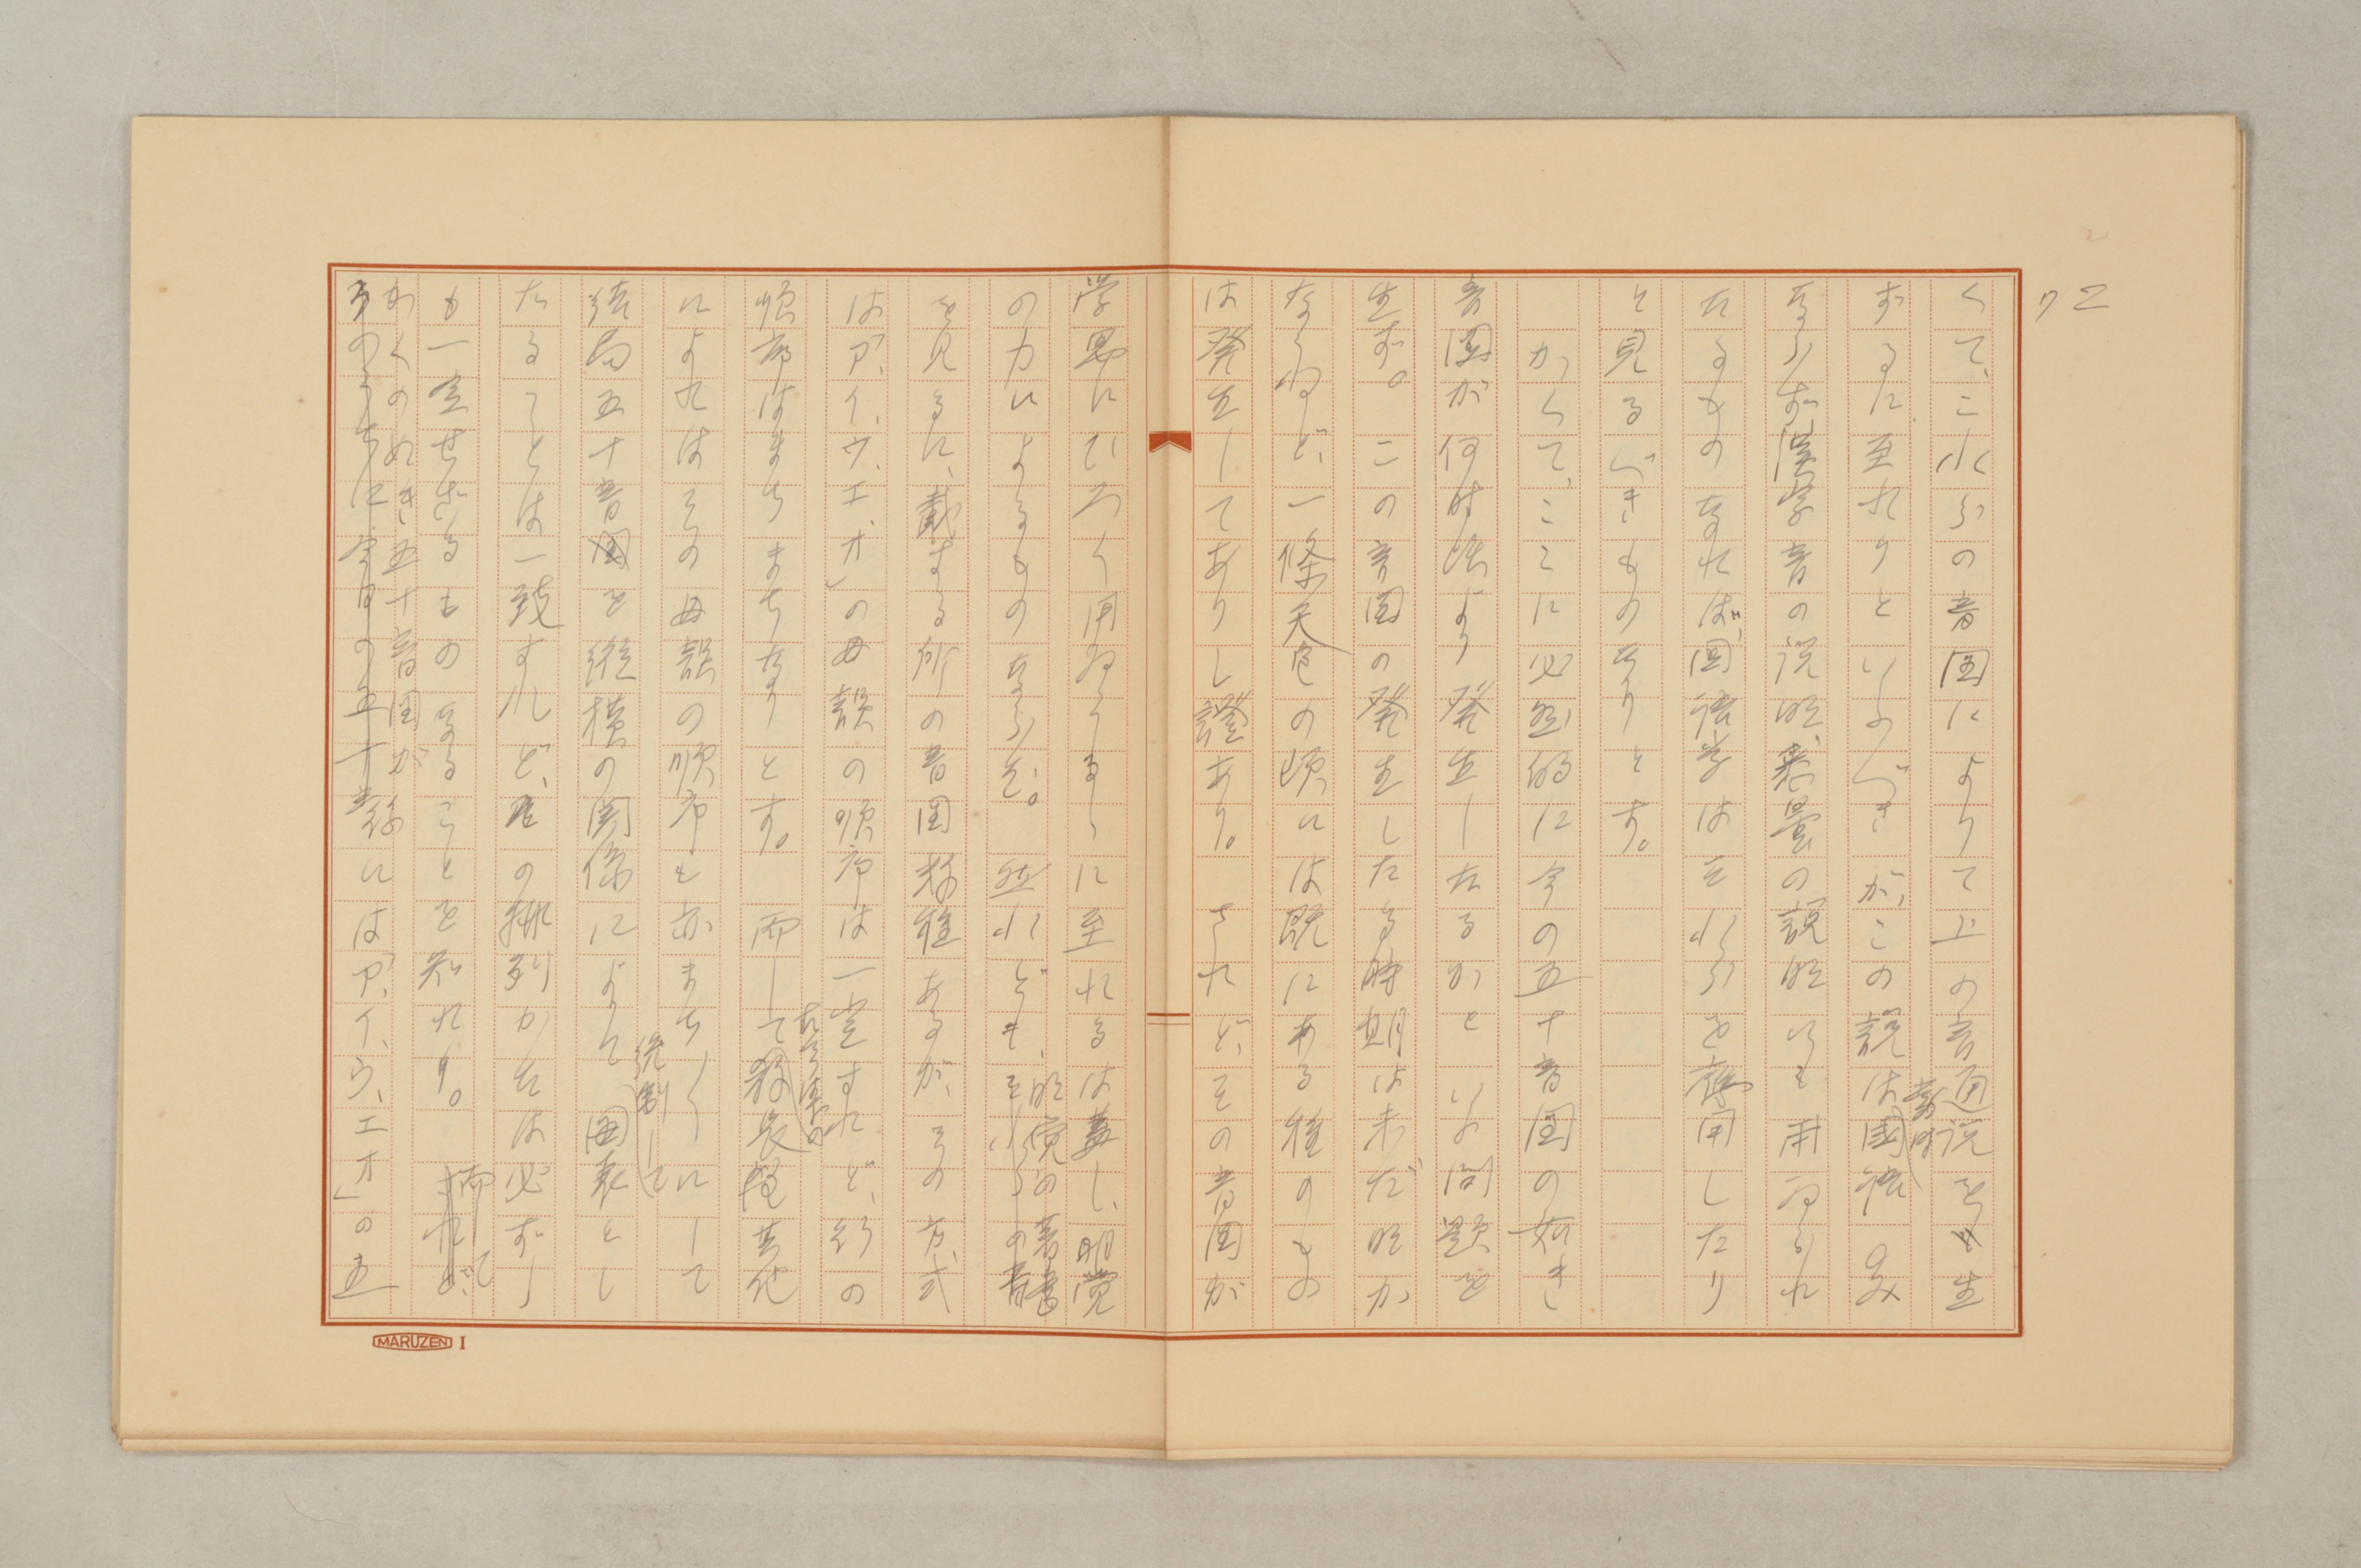 72
くて、これらの音図によりて上の音通説をも生
ずるに至れりといふべきが、この説は国語のみ
音韻
ならず漢字音の説明、悉曇の説明にも用ゐられ
たるものなれば、国語学はそれらを應用したり
と見るべきものなりとす。
かくて、ここに必然的に今の五十音図の如き
音図が何時頃より発生したるかといふ問題を
生ず。この音図の発生したる時期は未だ明か
ならねど、一條天皇の頃には既にある種のもの
は発生してありし證あり。されど、その音図が
学界にひろく用ゐらるゝに至れるは蓋し、明覚
の力によるものならむ。然れども、それらの音
明覚の著書
を見るに、載する所の音図数種あるが、その方式
はア、イ、ウ、エ、オ」の母韻の順序は一定すれど、行の
順序はまちまちなりとす。而して韻鏡其他
によればその母韻の順序も亦まちまちにして
統制して
結局五十音図を縦横の関係によりて図表とし
たることは一致すれど、その排列方法は必ずし
も一定せざるものなることを知れり。
而して
かくの如き五十音図が
そのうちに今日の五十音称にはア、イ、ウ、エオ」の五
MARUZEN I